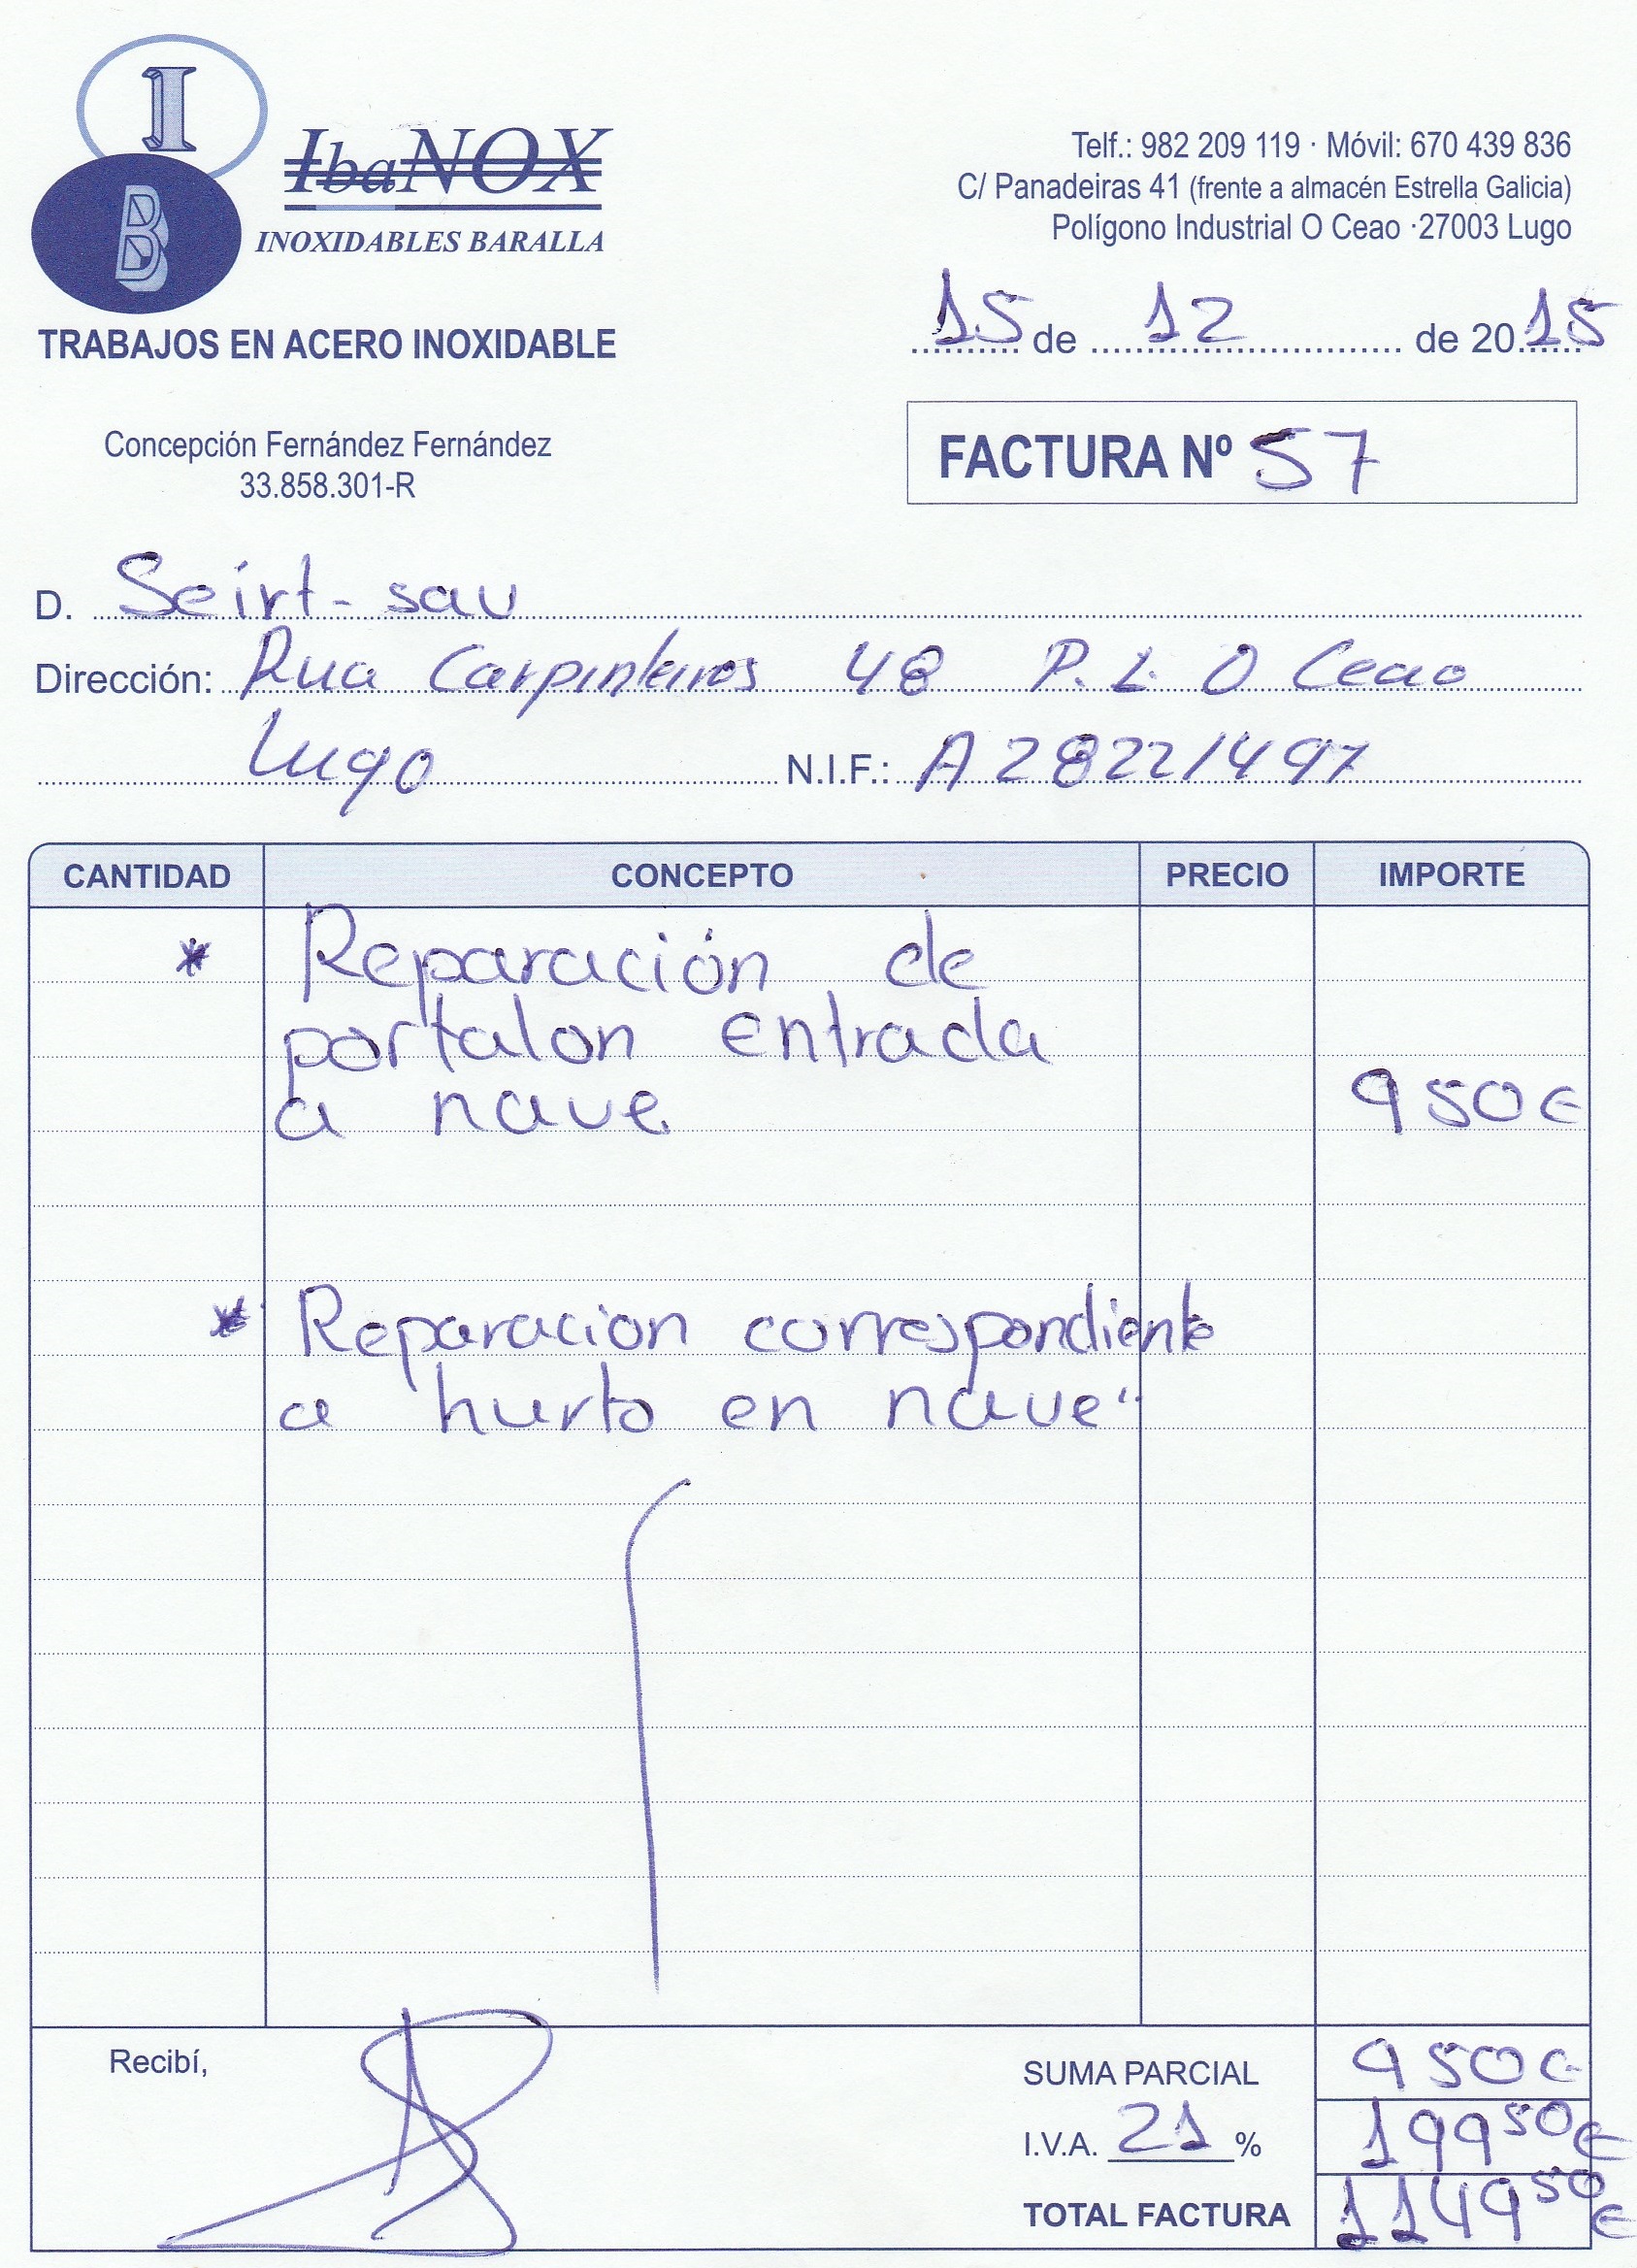 I
B
IbaNOX
INOXIDABLES BARALLA
TRABAJOS EN ACERO INOXIDABLE
Concepción Fernández Fernández
33.858.301-R
Telf.: 982 209 119 · Móvil: 670 439 836
C/ Panadeiras 41 (frente a almacén Estrella Galicia)
Polígono Industrial O Ceao ·27003 Lugo
15 de 12 de 2015
FACTURA Nº 57
D. Seirt-sau
Dirección: Rua Carpinteiros 48 P. I. O Ceao
Lugo N.I.F.: A 28221497
CANTIDAD CONCEPTO PRECIO IMPORTE
* Reparación de
portalon entrada
a nave 950€
* Reparacion correspondiente
a hurto en nave"
Recibí,
SUMA PARCIAL 950€
I.V.A. 21 % 199 50€
TOTAL FACTURA 1149 50€